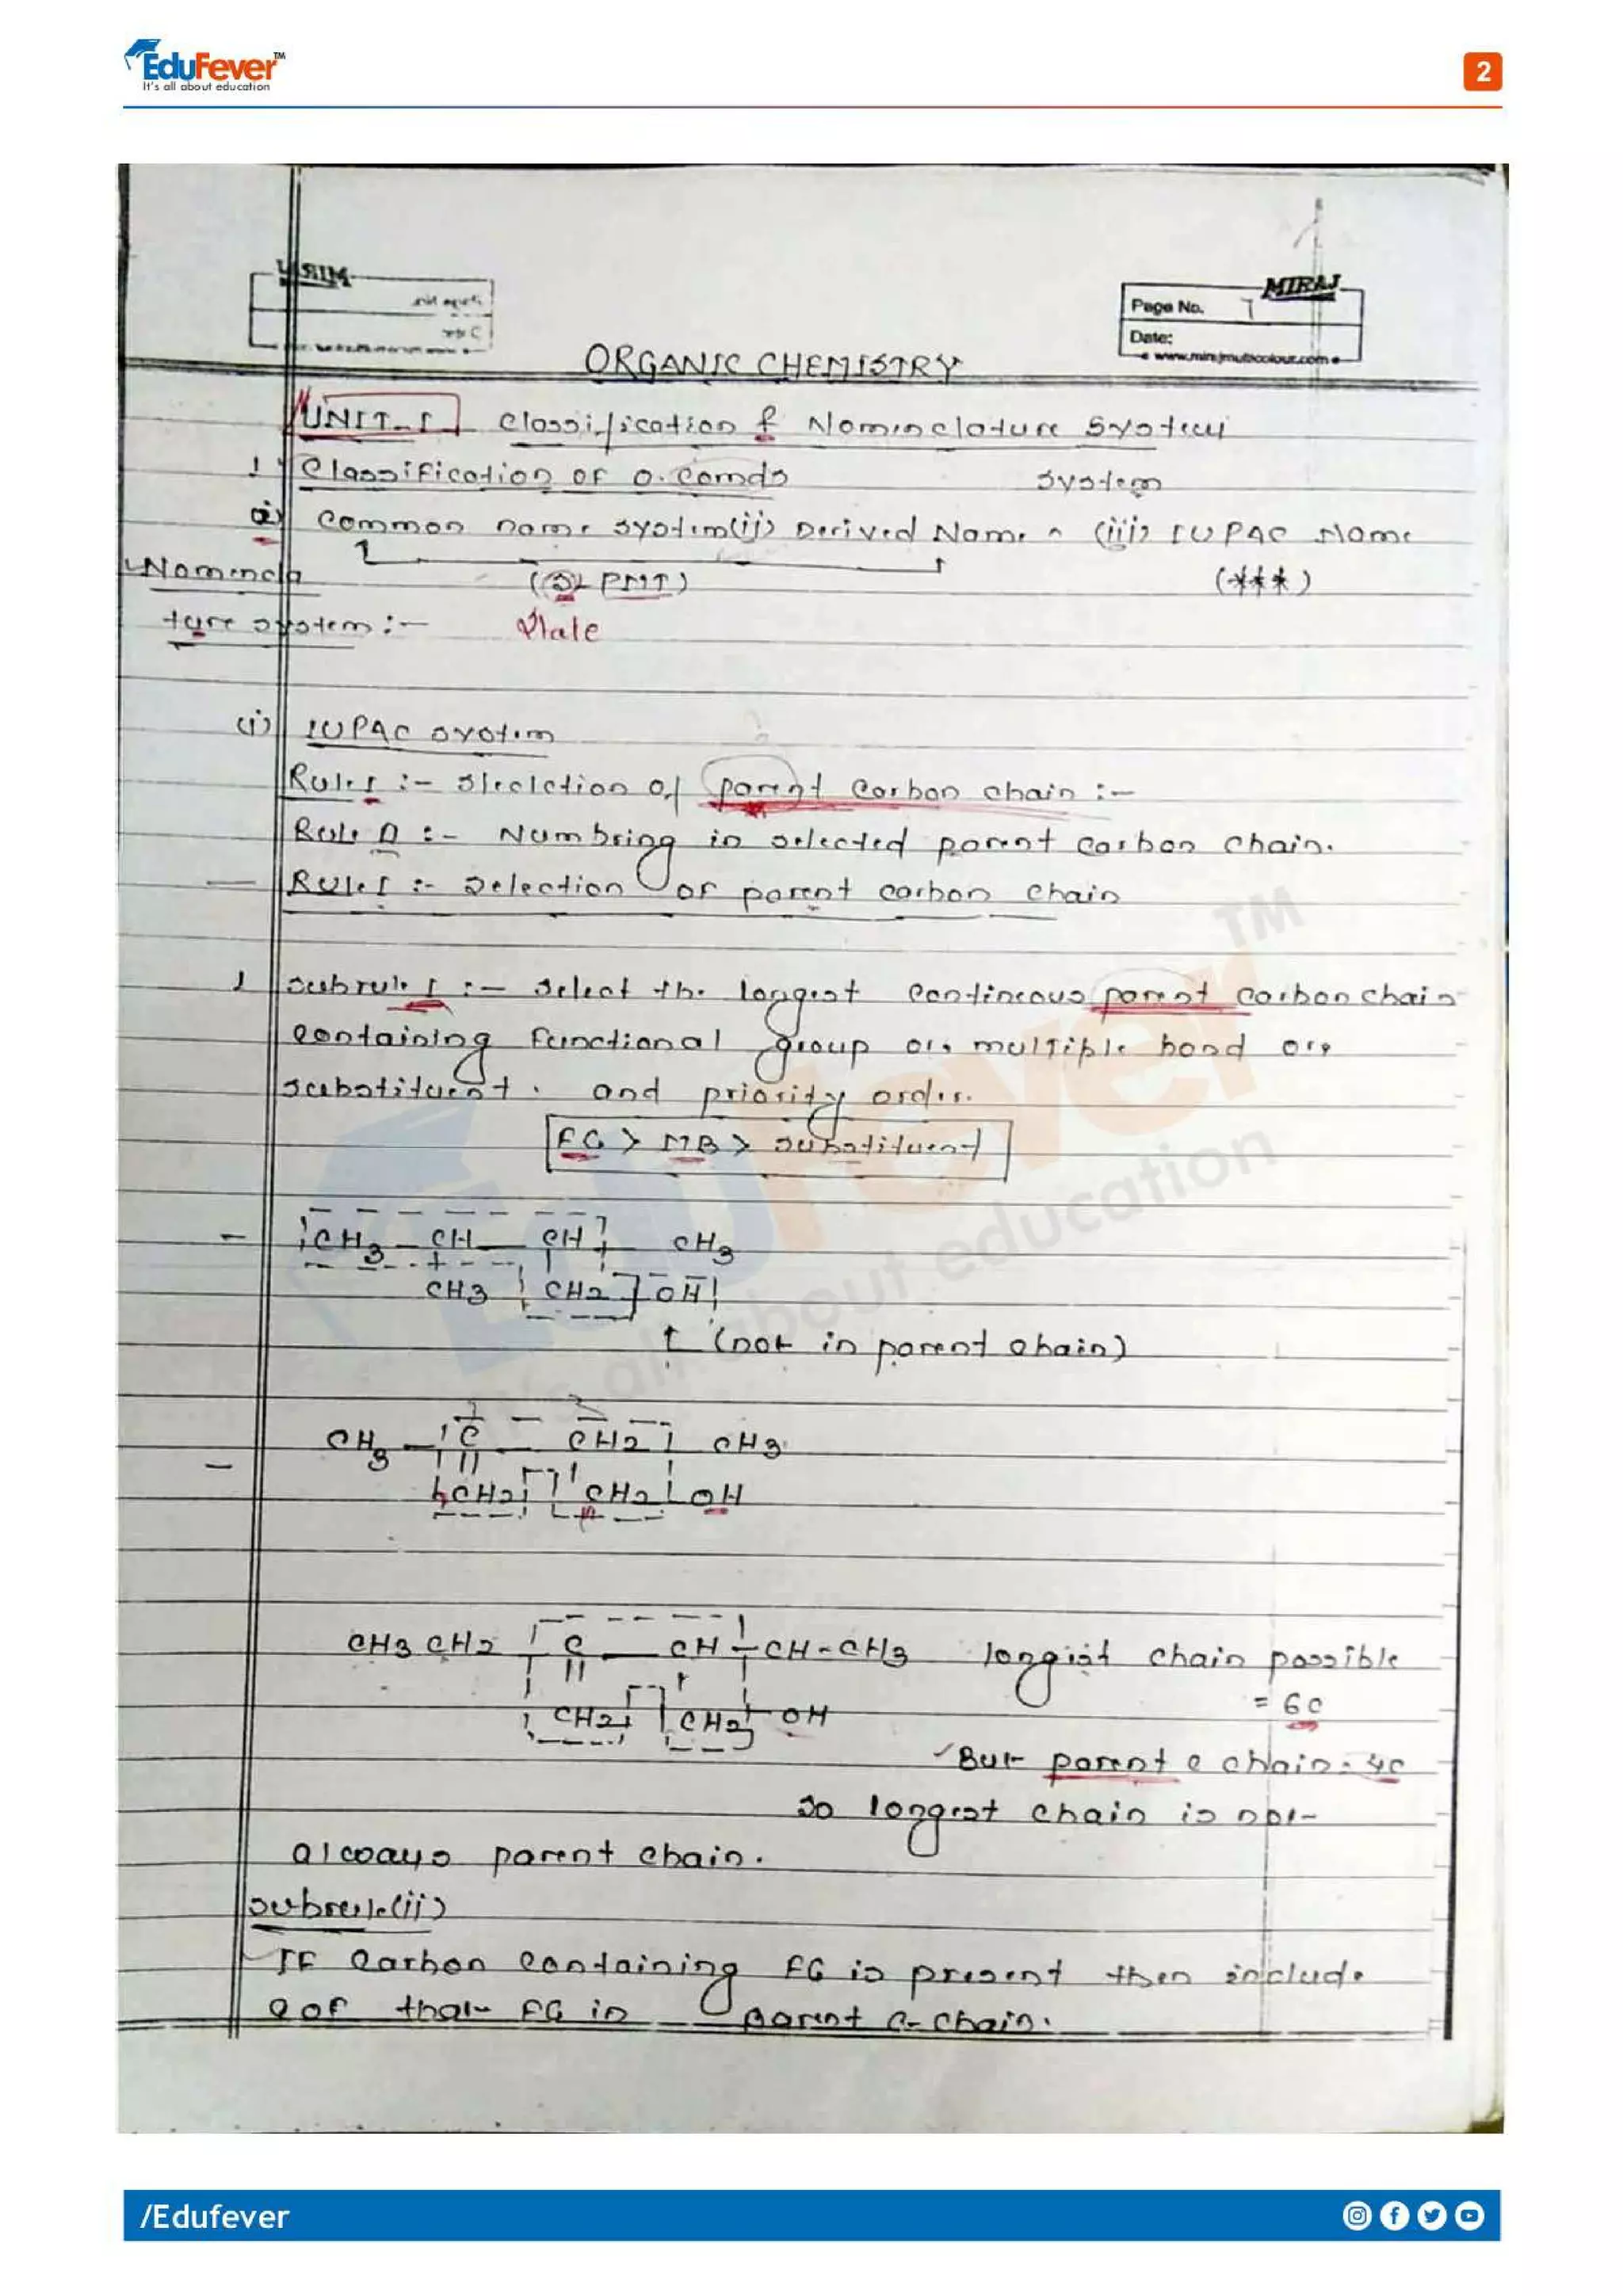 EduFever™
It's all about education
2
MIRAJ
Page No. 1
Date:
www.mirajmulticolour.com
ORGANIC CHEMISTRY
UNIT-I Classification & Nomenclature System
1 Classification of o. Comds
System
Common name system (ii) Derived Name (iii) IUPAC Name
Nomencla
(PMT) (***)
ture system :- State
(i) IUPAC system
Rule I :- Sleclction of parent carbon chain :-
Rule II :- Numbring in selected parent carbon chain.
Rule I :- Selection of parent carbon chain
1 subrule I :- Select the longest continous parent carbon chain
containing functional group or multiple bond or
substituent. and priority order.
FG > MB > substituent
- CH3 – CH – CH – CH3
CH3 CH2 – OH
↑ (not in parent chain)
CH3 – C – CH2 CH3
-
CH2 CH2 – OH
CH3 CH2 – C – CH – CH – CH3 longist chain possible
= 6C
CH2 CH2 – OH
But parent c chain = 4C
So longest chain is not
always parent chain.
subrule (ii)
IF Carbon containing FG is present then include
C of that FG in parent C-chain.
EduFever™
It's all about education
/Edufever